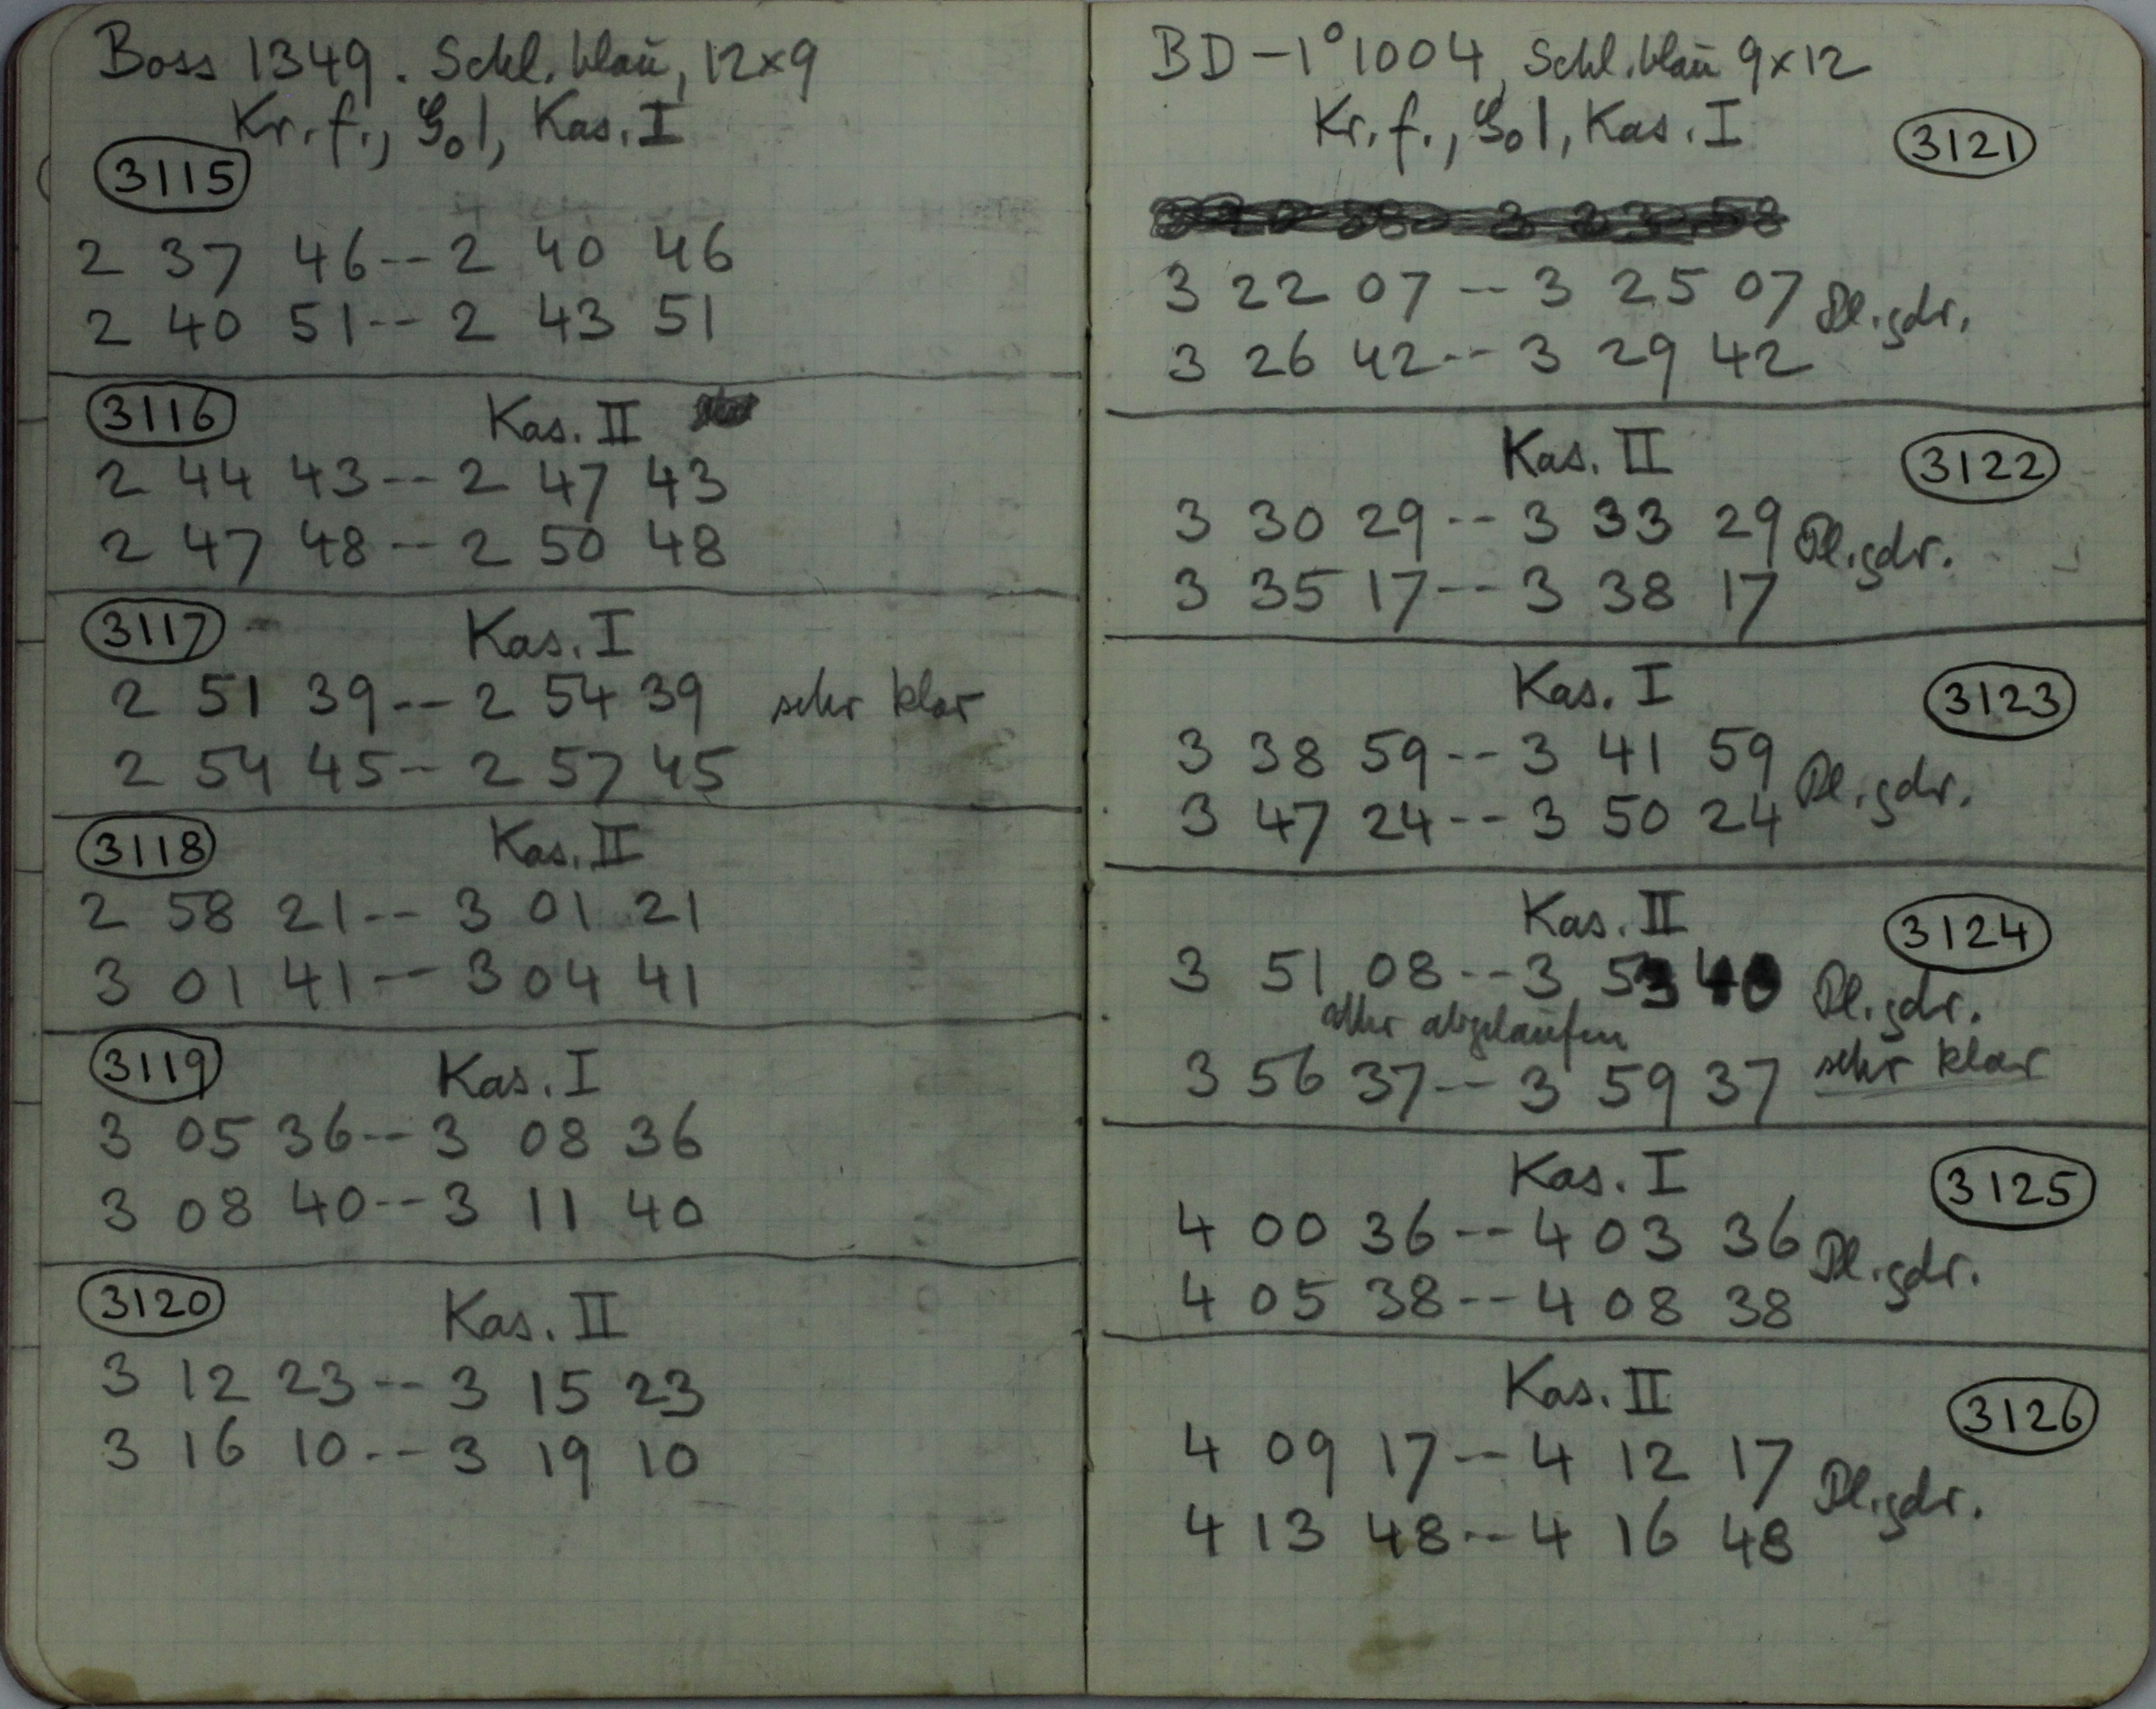 Boss 1349. Schl. blau, 12x9
Kr. f., 1, Kas. I
3115
2 37 46 -- 2 40 46
2 40 51 -- 2 43 51
3116 Kas. II
2 44 43 -- 2 47 43
2 47 48 -- 2 50 48
3117 Kas. I
2 51 39 -- 2 54 39 sehr klar
2 54 45 -- 2 57 45
3118 Kas. II
2 58 21 -- 3 01 21
3 01 41 -- 3 04 41
3119 Kas. I
3 05 36 -- 3 08 36
3 08 40 -- 3 11 40
3120 Kas. II
3 12 23 -- 3 15 23
3 16 10 -- 3 19 10
BD -1° 1004, Schl. blau 9x12
Kr. f., 1, Kas. I 3121
3 22 07 -- 3 25 07 Pl. gdr.
3 26 42 -- 3 29 42
Kas. II 3122
3 30 29 -- 3 33 29 Pl. gdr.
3 35 17 -- 3 38 17
Kas. I 3123
3 38 59 -- 3 41 59 Pl. gdr.
3 47 24 -- 3 50 24
Kas. II 3124
3 51 08 -- 3 53 40 Pl. gdr.
abgelaufen
3 56 37 -- 3 59 37 sehr klar
Kas. I 3125
4 00 36 -- 4 03 36 Pl. gdr.
4 05 38 -- 4 08 38
Kas. II 3126
4 09 17 -- 4 12 17 Pl. gdr.
4 13 48 -- 4 16 48